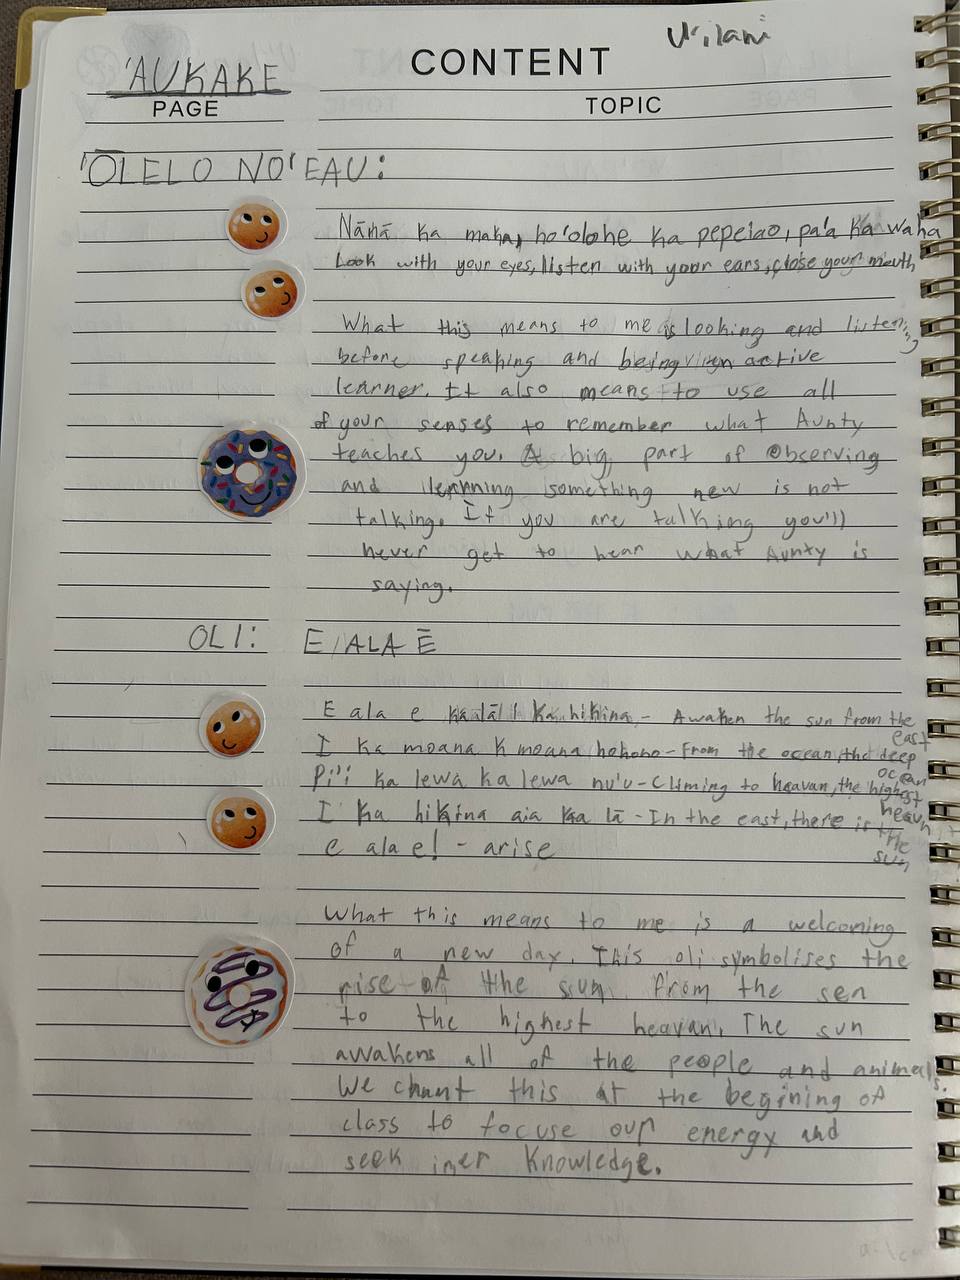 U'ilani
'AUKAKE
CONTENT
PAGE
TOPIC
'ŌLELO NO'EAU:
Nānā ka maka, ho'olohe ka pepeiao, pa'a ka waha
Look with your eyes, listen with your ears, close your mouth
What this means to me is looking and listening
before speaking and being an active
learner. It also means to use all
of your senses to remember what Aunty
teaches you. A big part of observing
and learning something new is not
talking. If you are talking you'll
never get to hear what Aunty is
saying.
OLI: E ALA Ē
E ala e ka lā i ka hikina - Awaken the sun from the east
I ka moana k moana hohono - From the ocean, the deep ocean
Pi'i ka lewa ka lewa nu'u - Climing to heavan, the highest heavn
I ka hikina aia ka lā - In the east, there is the sun
e ala e! - arise
What this means to me is a welcoming
of a new day. This oli symbolises the
rise of the sun from the sea
to the highest heavan. The sun
awakens all of the people and animals.
We chant this at the begining of
class to focuse our energy and
seek iner knowledge.